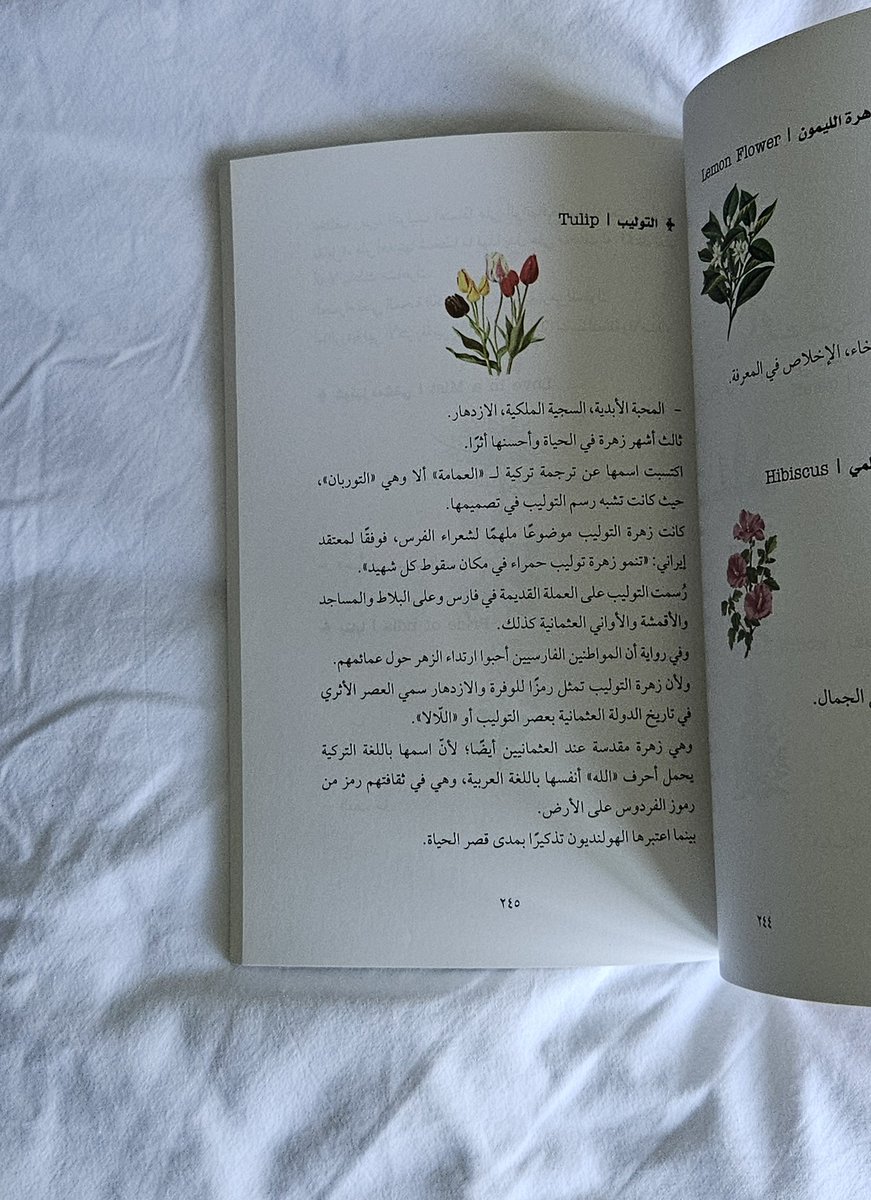 زهرة الليمون | Lemon Flower
الإخلاص في المعرفة.
| Hibiscus
الجمال.
٢٤٤
التوليب | Tulip
- المحبة الأبدية، السجية الملكية، الازدهار.
ثالث أشهر زهرة في الحياة وأحسنها أثرًا.
اكتسبت اسمها عن ترجمة تركية لـ «العمامة» ألا وهي «التوربان»،
حيث كانت تشبه رسم التوليب في تصميمها.
كانت زهرة التوليب موضوعًا ملهمًا لشعراء الفرس، فوفقًا لمعتقد
إيراني: «تنمو زهرة توليب حمراء في مكان سقوط كل شهيد».
رُسمت التوليب على العملة القديمة في فارس وعلى البلاط والمساجد
والأقمشة والأواني العثمانية كذلك.
وفي رواية أن المواطنين الفارسيين أحبوا ارتداء الزهر حول عمائمهم.
ولأن زهرة التوليب تمثل رمزًا للوفرة والازدهار سمي العصر الأثري
في تاريخ الدولة العثمانية بعصر التوليب أو «اللّالا».
وهي زهرة مقدسة عند العثمانيين أيضًا؛ لأنّ اسمها باللغة التركية
يحمل أحرف «الله» أنفسها باللغة العربية، وهي في ثقافتهم رمز من
رموز الفردوس على الأرض.
بينما اعتبرها الهولنديون تذكيرًا بمدى قصر الحياة.
٢٤٥